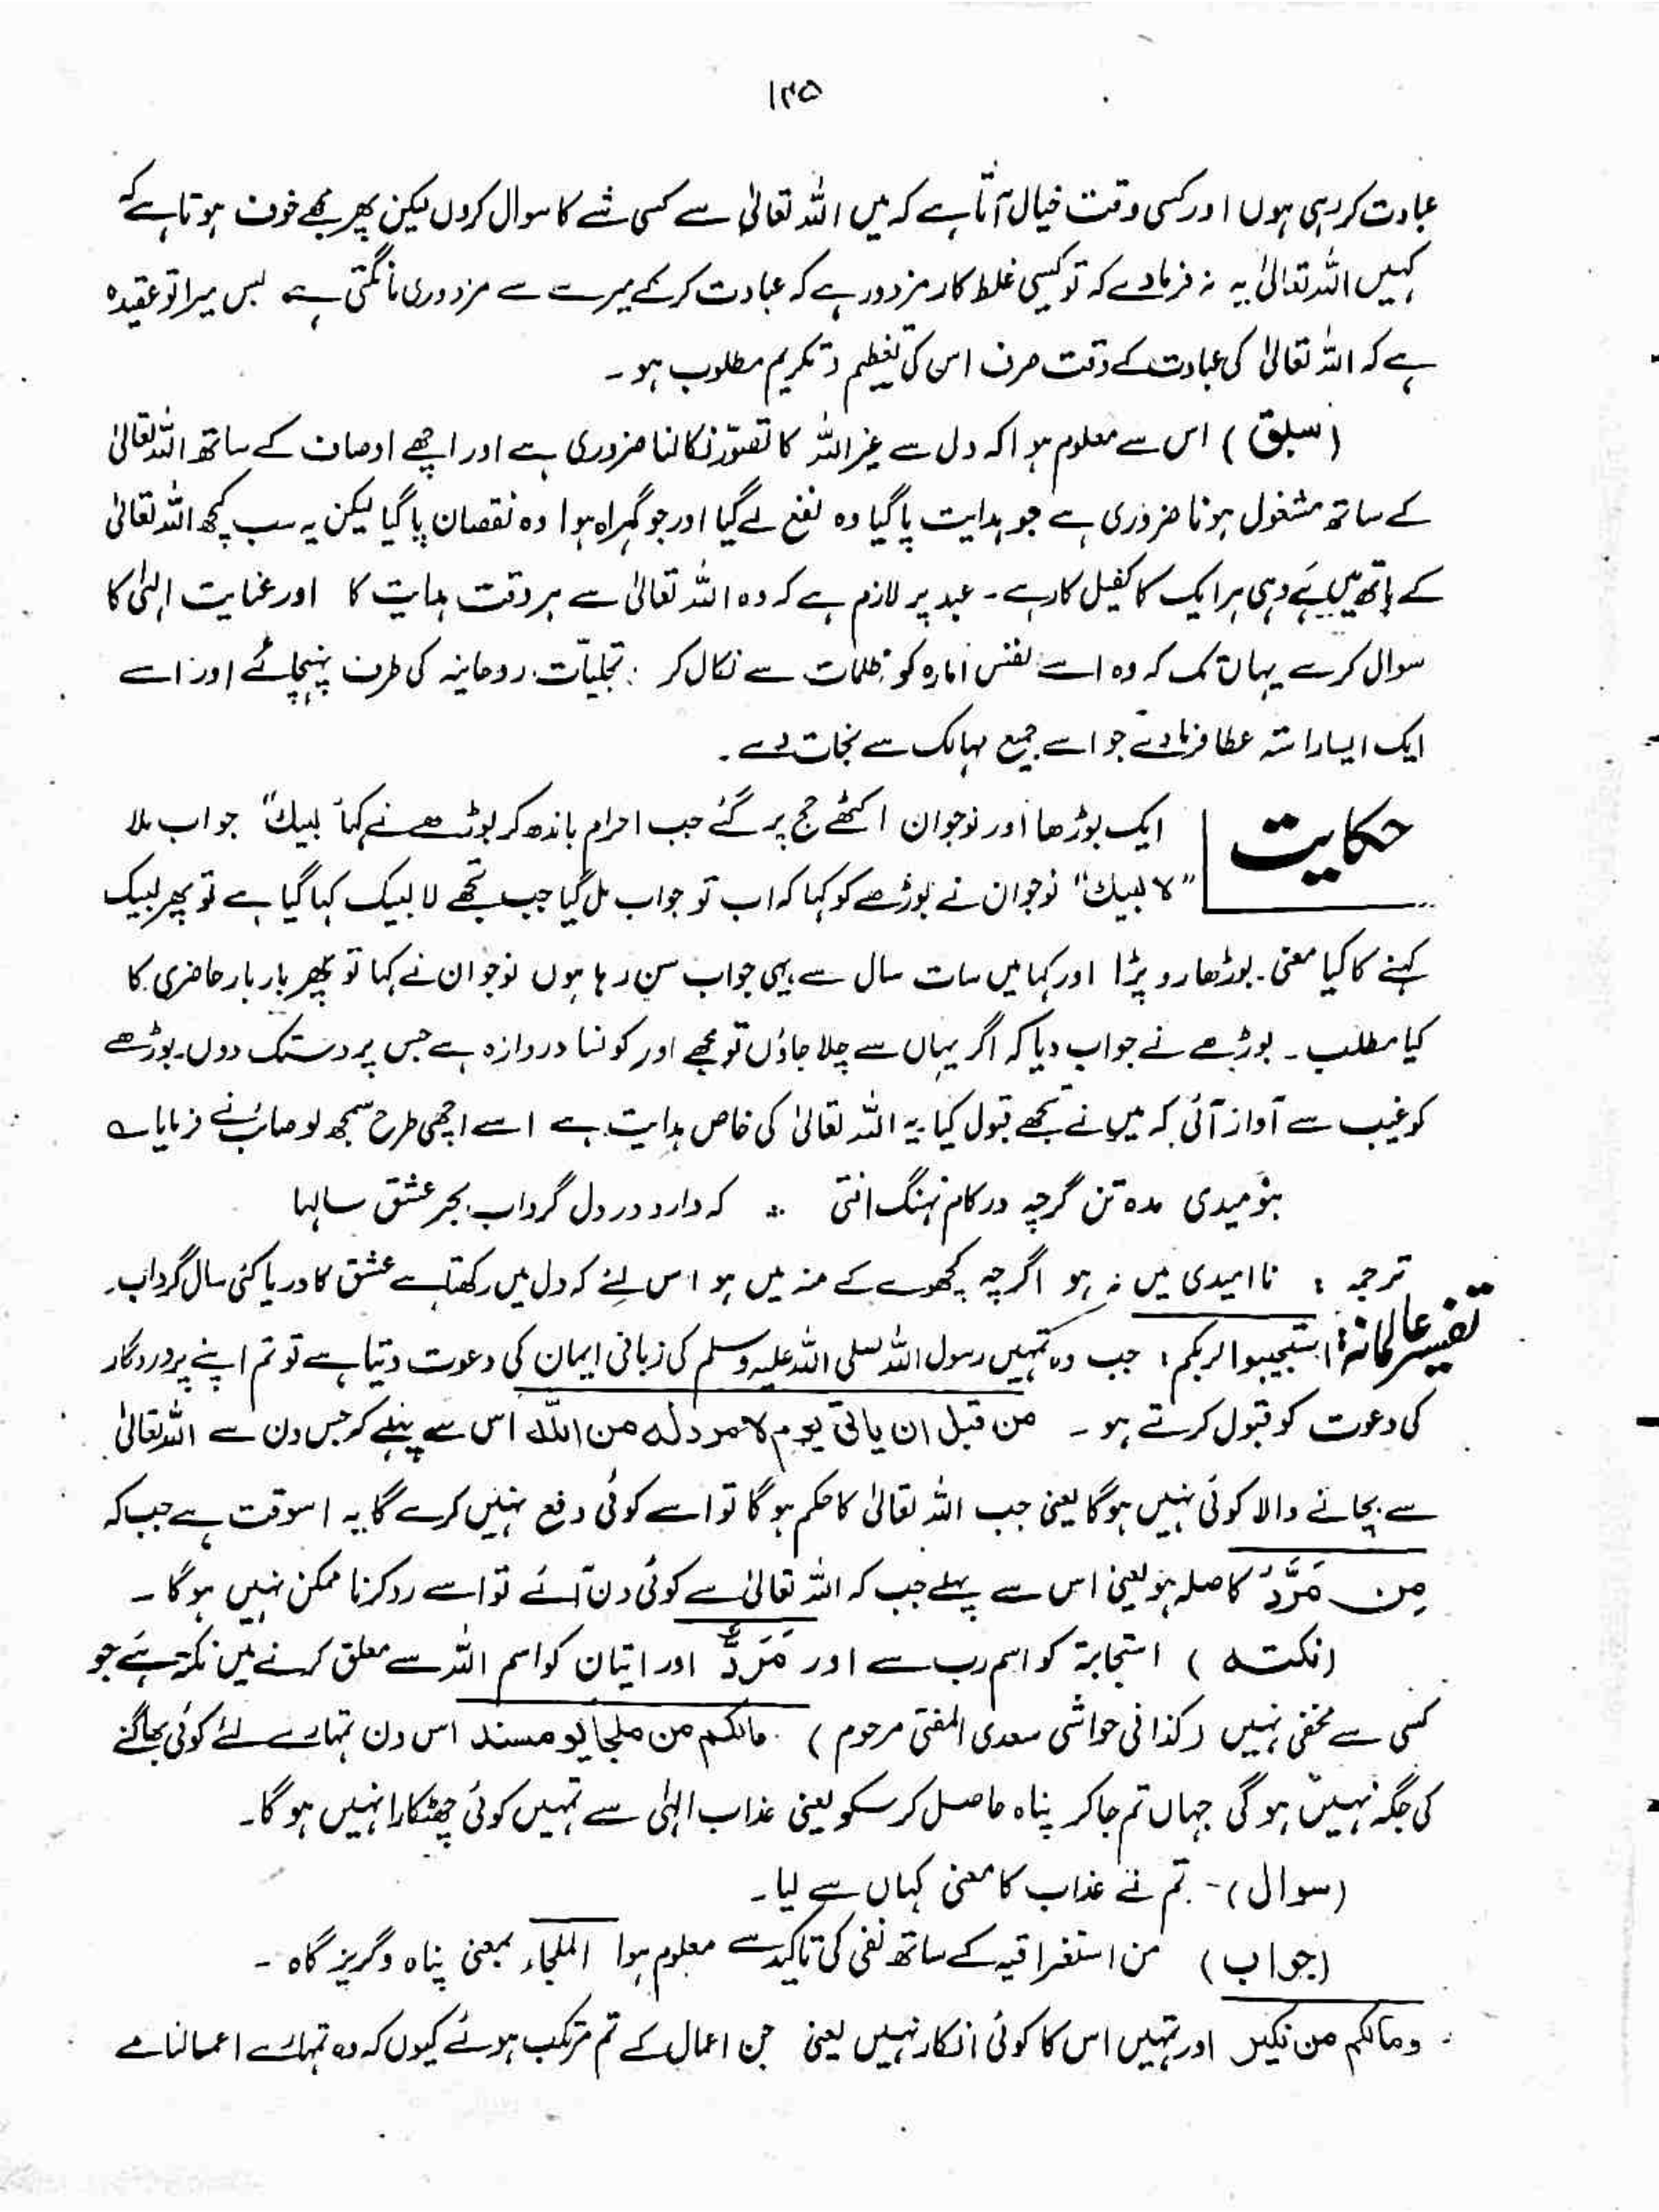 ۱۴۵
عبادت کر رہی ہوں اور کسی وقت خیال آتا ہے کہ میں اللہ تعالیٰ سے کسی شے کا سوال کروں لیکن پھر مجھے خوف ہوتا ہے کہ
کہیں اللہ تعالیٰ یہ نہ فرمادے کہ تو کیسی غلط کار مزدور ہے کہ عبادت کر کے میرے سے مزدوری مانگتی ہے بس میرا تو عقیدہ
ہے کہ اللہ تعالیٰ کی عبادت کے وقت صرف اس کی تعظیم و تکریم مطلوب ہو۔
(سبق) اس سے معلوم ہوا کہ دل سے غیر اللہ کا تصور نکالنا ضروری ہے اور اچھے اوصاف کے ساتھ اللہ تعالیٰ
کے ساتھ مشغول ہونا ضروری ہے جو ہدایت پا گیا وہ نفع لے گیا اور جو گمراہ ہوا وہ نقصان پا گیا لیکن یہ سب کچھ اللہ تعالیٰ
کے ہاتھ میں ہے وہی ہر ایک کا کفیل کار ہے۔ عبد پر لازم ہے کہ وہ اللہ تعالیٰ سے ہر وقت ہدایت کا اور عنایت الٰہی کا
سوال کرے یہاں تک کہ وہ اسے نفس امارہ کو ظلمات سے نکال کر تجلیّات روحانیہ کی طرف پہنچائے اور اسے
ایک ایسا راستہ عطا فرمادے جو اسے جمیع مہالک سے نجات دے۔
حکایت
ایک بوڑھا اور نوجوان اکٹھے حج پر گئے جب احرام باندھ کر بوڑھے نے کہا "لبیك" جواب ملا
"لا لبیك" نوجوان نے بوڑھے کو کہا کہ اب تو جواب مل گیا جب تجھے لا لبیک کہا گیا ہے تو پھر لبیک
کہنے کا کیا معنی۔ بوڑھا رو پڑا اور کہا میں سات سال سے یہی جواب سن رہا ہوں نوجوان نے کہا تو پھر بار بار حاضری کا
کیا مطلب۔ بوڑھے نے جواب دیا کہ اگر یہاں سے چلا جاؤں تو مجھے اور کونسا دروازہ ہے جس پر دستک دوں۔ بوڑھے
کو غیب سے آواز آئی کہ میں نے تجھے قبول کیا یہ اللہ تعالیٰ کی خاص ہدایت ہے اسے اچھی طرح سمجھ لو صائب نے فرمایا ؎
بنومیدی مدہ تن گرچہ در کام نہنگ افتی ؞ کہ دارد در دل گرداب بحر عشق سالہا
ترجمہ : نا امیدی میں نہ ہو اگرچہ کچھوے کے منہ میں ہو اس لئے کہ دل میں رکھتا ہے عشق کا دریا کئی سال گرداب۔
تفسیر عالمانہ : استجیبوا لربکم ، جب وہ تمہیں رسول اللہ صلی اللہ علیہ وسلم کی زبانی ایمان کی دعوت دیتا ہے تو تم اپنے پروردگار
کی دعوت کو قبول کرتے ہو۔ من قبل ان یاتی یوم لا مرد لہ من اللہ اس سے پہلے کہ جس دن سے اللہ تعالیٰ
سے بچانے والا کوئی نہیں ہوگا یعنی جب اللہ تعالیٰ کا حکم ہوگا تو اسے کوئی دفع نہیں کرے گا یہ اسوقت ہے جب کہ
مِن مَرَدَّ کا صلہ ہو یعنی اس سے پہلے جب کہ اللہ تعالیٰ سے کوئی دن آئے تو اسے رد کرنا ممکن نہیں ہوگا۔
(نکتہ) استجابة کو اسم رب سے اور مَرَدَّ اور اتیان کو اسم اللہ سے معلق کرنے میں نکتہ ہے جو
کسی سے مخفی نہیں (کذا فی حواشی سعدی المفتی مرحوم) مالکم من ملجا یومئذ اس دن تمہارے لئے کوئی بھاگنے
کی جگہ نہیں ہوگی جہاں تم جا کر پناہ حاصل کر سکو یعنی عذاب الٰہی سے تمہیں کوئی چھٹکارا نہیں ہوگا۔
(سوال)۔ تم نے عذاب کا معنی کہاں سے لیا۔
(جواب) من استغراقیہ کے ساتھ نفی کی تاکید سے معلوم ہوا الملجاء بمعنی پناہ و گریز گاہ۔
ومالکم من نکیر اور تمہیں اس کا کوئی انکار نہیں یعنی جن اعمال کے تم مرتکب ہوئے کیوں کہ وہ تمہارے اعمالنامے